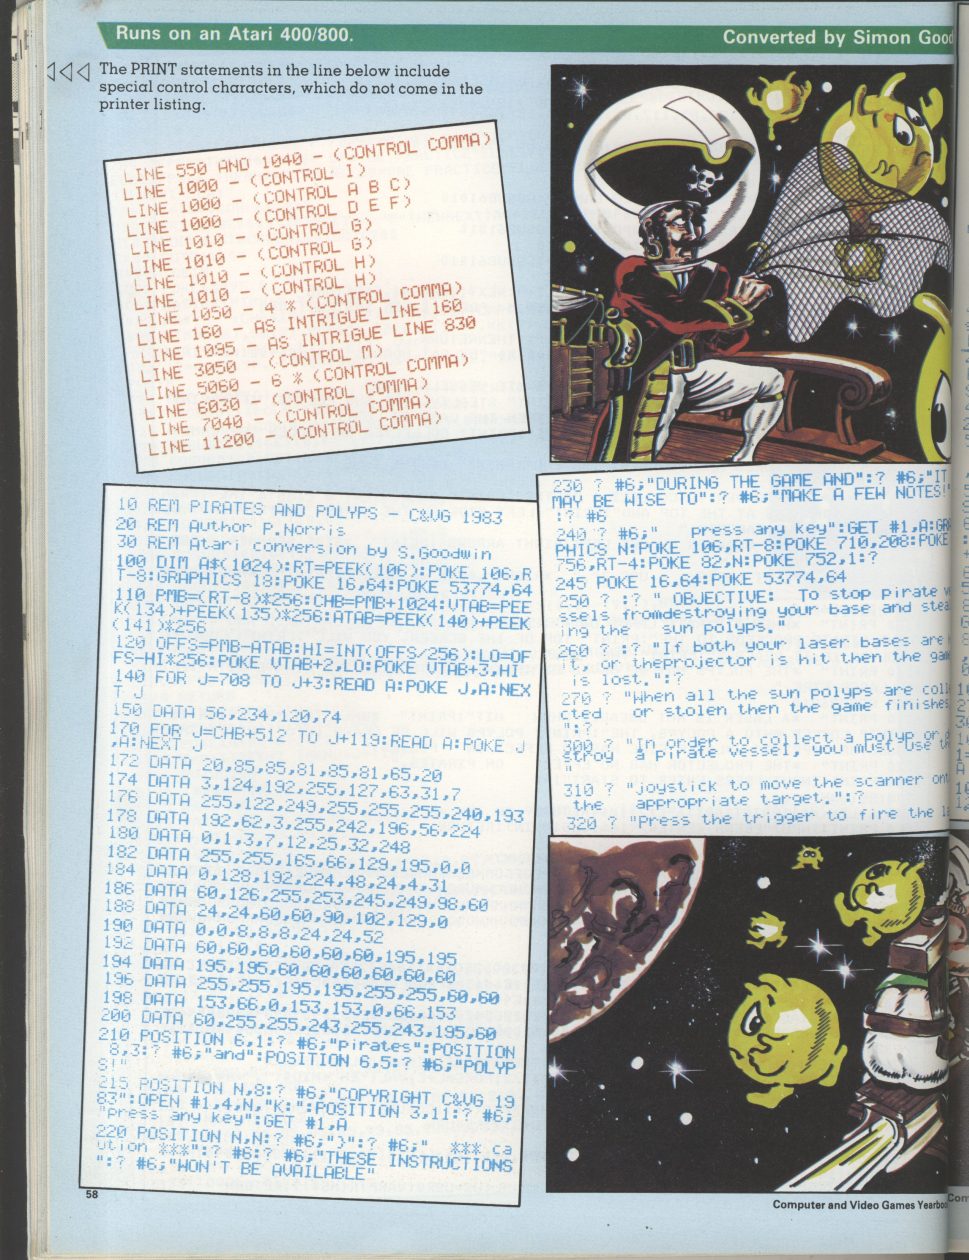 Runs on an Atari 400/800.
Converted by Simon Good
The PRINT statements in the line below include
special control characters, which do not come in the
printer listing.
LINE 550 AND 1040 - (CONTROL COMMA)
LINE 1000 - (CONTROL I)
LINE 1000 - (CONTROL A B C)
LINE 1000 - (CONTROL D E F)
LINE 1010 - (CONTROL G)
LINE 1010 - (CONTROL G)
LINE 1010 - (CONTROL H)
LINE 1010 - (CONTROL H)
LINE 1050 - 4 * (CONTROL COMMA)
LINE 160 - AS INTRIGUE LINE 160
LINE 1095 - AS INTRIGUE LINE 830
LINE 3050 - (CONTROL M)
LINE 5060 - 6 * (CONTROL COMMA)
LINE 6030 - (CONTROL COMMA)
LINE 7040 - (CONTROL COMMA)
LINE 11200 - (CONTROL COMMA)
10 REM PIRATES AND POLYPS - C&VG 1983
20 REM Author P.Norris
30 REM Atari conversion by S.Goodwin
100 DIM A$(1024):RT=PEEK(106):POKE 106,R
T-8:GRAPHICS 18:POKE 16,64:POKE 53774,64
110 PMB=(RT-8)*256:CHB=PMB+1024:VTAB=PEE
K(134)+PEEK(135)*256:ATAB=PEEK(140)+PEEK
(141)*256
120 OFFS=PMB-ATAB:HI=INT(OFFS/256):LO=OF
FS-HI*256:POKE VTAB+2,LO:POKE VTAB+3,HI
140 FOR J=708 TO J+3:READ A:POKE J,A:NEX
T J
150 DATA 56,234,120,74
170 FOR J=CHB+512 TO J+119:READ A:POKE J
,A:NEXT J
172 DATA 20,85,85,81,85,81,65,20
174 DATA 3,124,192,255,127,63,31,7
176 DATA 255,122,249,255,255,255,240,193
178 DATA 192,62,3,255,242,196,56,224
180 DATA 0,1,3,7,12,25,32,248
182 DATA 255,255,165,66,129,195,0,0
184 DATA 0,128,192,224,48,24,4,31
186 DATA 60,126,255,253,245,249,98,60
188 DATA 24,24,60,60,90,102,129,0
190 DATA 0,0,8,8,8,24,24,52
192 DATA 60,60,60,60,60,60,195,195
194 DATA 195,195,60,60,60,60,60,60
196 DATA 255,255,195,195,255,255,60,60
198 DATA 153,66,0,153,153,0,66,153
200 DATA 60,255,255,243,255,243,195,60
210 POSITION 6,1:? #6;"pirates":POSITION
8,3:? #6;"and":POSITION 6,5:? #6;"POLYP
S!"
215 POSITION N,8:? #6;"COPYRIGHT C&VG 19
83":OPEN #1,4,N,"K:":POSITION 3,11:? #6;
"press any key":GET #1,A
220 POSITION N,N:? #6;"}":? #6;"  *** ca
ution ***":? #6:? #6;"THESE INSTRUCTIONS
":? #6;"WON'T BE AVAILABLE"
230 ? #6;"DURING THE GAME AND":? #6;"IT
MAY BE WISE TO":? #6;"MAKE A FEW NOTES!"
:? #6
240 ? #6;"   press any key":GET #1,A:GR
PHICS N:POKE 106,RT-8:POKE 710,208:POKE
756,RT-4:POKE 82,N:POKE 752,1:?
245 POKE 16,64:POKE 53774,64
250 ? :? " OBJECTIVE:  To stop pirate v
ssels fromdestroying your base and stea
ing the   sun polyps."
260 ? :? "If both your laser bases are
it, or theprojector is hit then the gam
is lost.":?
270 ? "When all the sun polyps are coll
cted   or stolen then the game finishes
":?
300 ? "In order to collect a polyp or
stroy  a pirate vessel, you must use t
"
310 ? "joystick to move the scanner ont
the   appropriate target.":?
320 ? "Press the trigger to fire the la
58
Computer and Video Games Yearboo